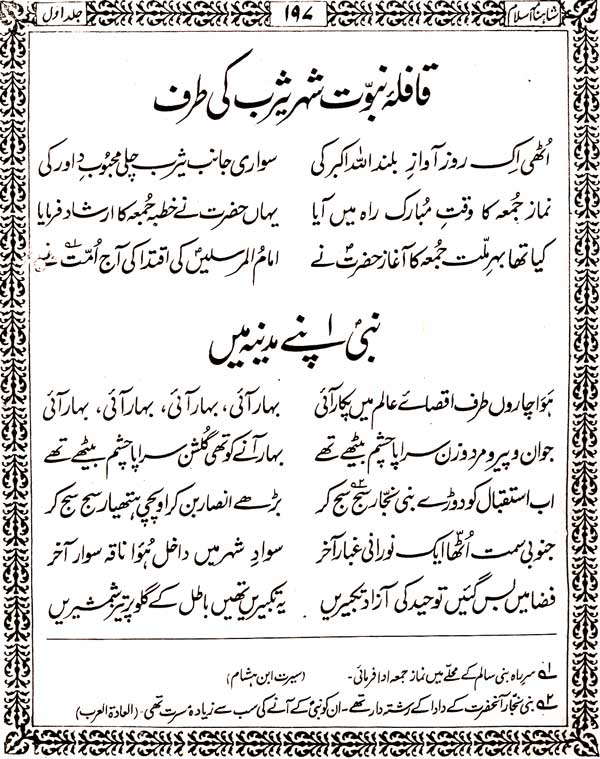 شاہنامۂ اسلام ۱۹۷ جلد اوّل
قافلۂ نبوّت شہرِ یثرب کی طرف
اُٹھی اِک روز آوازِ بلند اللہ اکبر کی سواری جانبِ یثرب چلی محبوبِ داور کی
نمازِ جُمعہ کا وقتِ مُبارک راہ میں آیا یہاں حضرت نے خطبہ جُمعہ کا ارشاد فرمایا
کیا تھا بہرِ ملّت جُمعہ کا آغاز حضرتؐ نے امامُ المرسلیںؐ کی اقتدا کی آج اُمّت نے ۱
نبیؐ اپنے مدینہ میں
ہَوا چاروں طرف اقصائے عالم میں پکار آئی بہار آئی، بہار آئی، بہار آئی، بہار آئی
جوان و پیر و مرد و زن سراپا چشم بیٹھے تھے بہار آنے کو تھی گُلشن سراپا چشم بیٹھے تھے
اب استقبال کو دوڑے بنی نجّار سج سج کر ۲ بڑھے انصار بن کر اوپچی ہتھیار سج سج کر
جنوبی سمت اُٹھا ایک نورانی غبار آخر سوادِ شہر میں داخل ہُوا ناقہ سوار آخر
فضا میں بس گئیں توحید کی آزاد تکبیریں یہ تکبیریں تھیں باطل کے گلو پر تیز شمشیریں
۱ سرِ راہ بنی سالم کے محلّے میں نماز جمعہ ادا فرمائی۔ (سیرت ابن ہشام)
۲ بنی نجّار آنحضرت کے دادا کے رشتہ دار تھے۔ ان کو نبیؐ کے آنے کی سب سے زیادہ مسرت تھی۔ (العادۃ العرب)